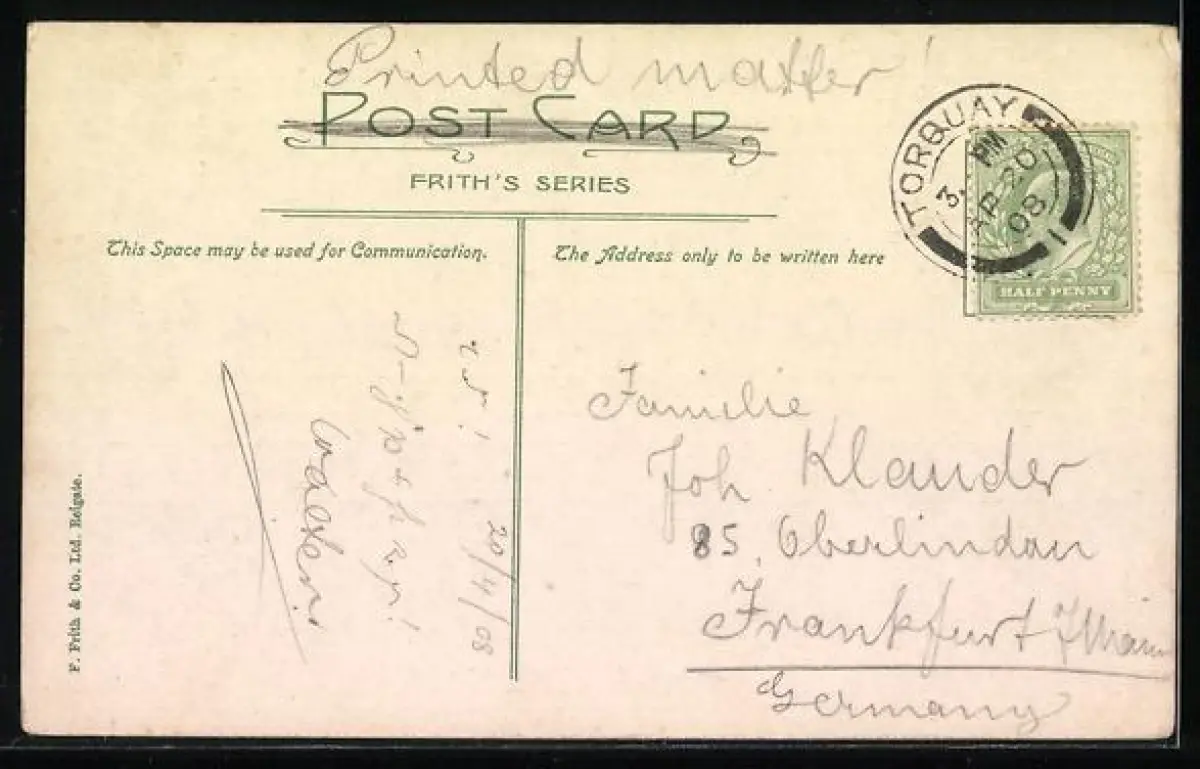 Printed matter!
POST CARD
FRITH'S SERIES
This Space may be used for Communication.
The Address only to be written here
TORQUAY
3. PM
AP 20
08
1
HALF PENNY
20/4/08
Familie
Joh Klauder
85, Oberlindau
Frankfurt
Germany
F. Frith & Co. Ltd. Reigate.